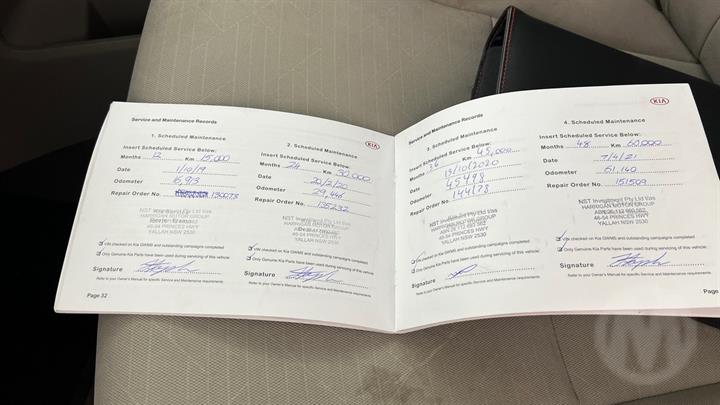 Service and Maintenance Records
1. Scheduled Maintenance
Insert Scheduled Service Below:
Months 12 Km 15,000
Date 1/10/19
Odometer
Repair Order No. 130078
NST Investment Pty Ltd t/as
HARRIGAN MOTOR GROUP
46-54 PRINCES HWY
YALLAH NSW 2530
VIN checked on Kia GWMS and outstanding campaigns completed
Only Genuine Kia Parts have been used during servicing of this vehicle.
Signature
Refer to your Owner's Manual for specific Service and Maintenance requirements.
Page 32
KIA
2. Scheduled Maintenance
Insert Scheduled Service Below:
Months 24 Km 30,000
Date 20/2/20
Odometer 29,446
Repair Order No. 135232
NST Investment Pty Ltd t/as
HARRIGAN MOTOR GROUP
46-54 PRINCES HWY
YALLAH NSW 2530
VIN checked on Kia GWMS and outstanding campaigns completed
Only Genuine Kia Parts have been used during servicing of this vehicle.
Signature
Refer to your Owner's Manual for specific Service and Maintenance requirements.
Service and Maintenance Records
3. Scheduled Maintenance
Insert Scheduled Service Below:
Months 36 Km 45,000
Date 13/10/2020
Odometer 45498
Repair Order No. 144178
NST Investment Pty Ltd t/as
HARRIGAN MOTOR GROUP
46-54 PRINCES HWY
YALLAH NSW 2530
VIN checked on Kia GWMS and outstanding campaigns completed
Only Genuine Kia Parts have been used during servicing of this vehicle.
Signature
Refer to your Owner's Manual for specific Service and Maintenance requirements.
KIA
4. Scheduled Maintenance
Insert Scheduled Service Below:
Months 48 Km 60,000
Date 7/4/21
Odometer 61,140
Repair Order No. 151509
NST Investment Pty Ltd t/as
HARRIGAN MOTOR GROUP
ABN 26 112 660 562
46-54 PRINCES HWY
YALLAH NSW 2530
VIN checked on Kia GWMS and outstanding campaigns completed
Only Genuine Kia Parts have been used during servicing of this vehicle.
Signature
Refer to your Owner's Manual for specific Service and Maintenance requirements.
Page
M